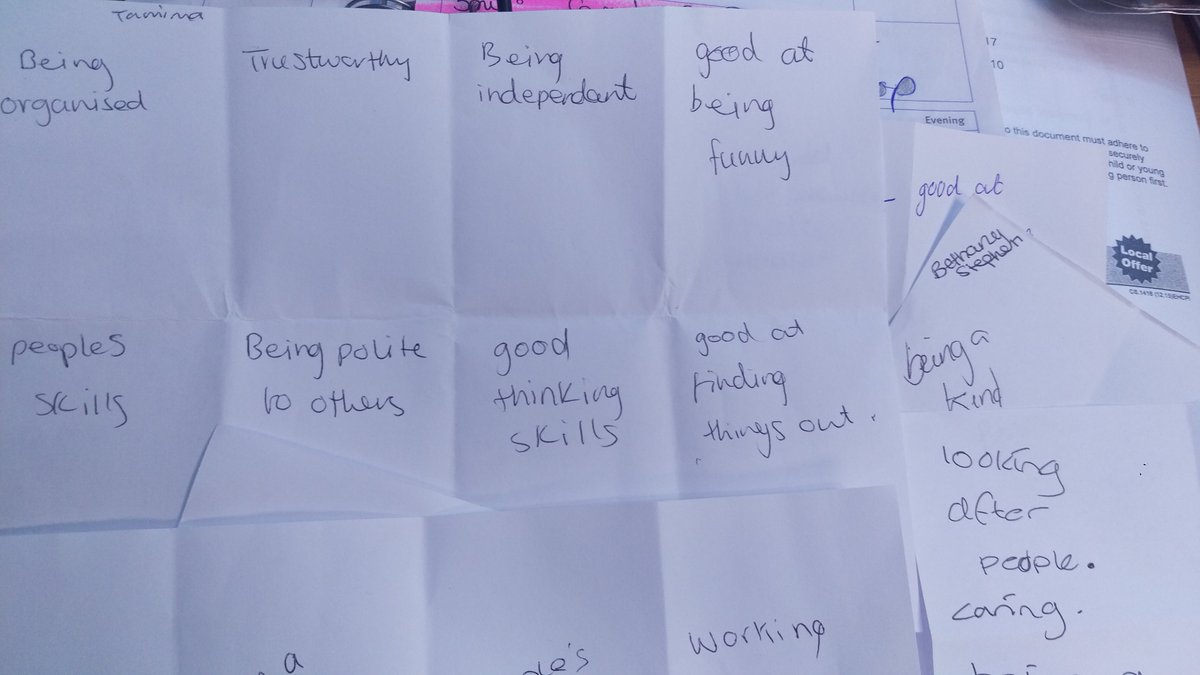 Tamima
Being
organised
Trustworthy
Being
independant
good at
being
funny
peoples
skills
Being polite
to others
good
thinking
skills
good at
finding
things out.
a
working
17
10
Evening
o this document must adhere to
securely
hild or young
g person first.
- good at
Local
Offer
Bethany
Stephen
being a
kind
looking
after
people.
caring.